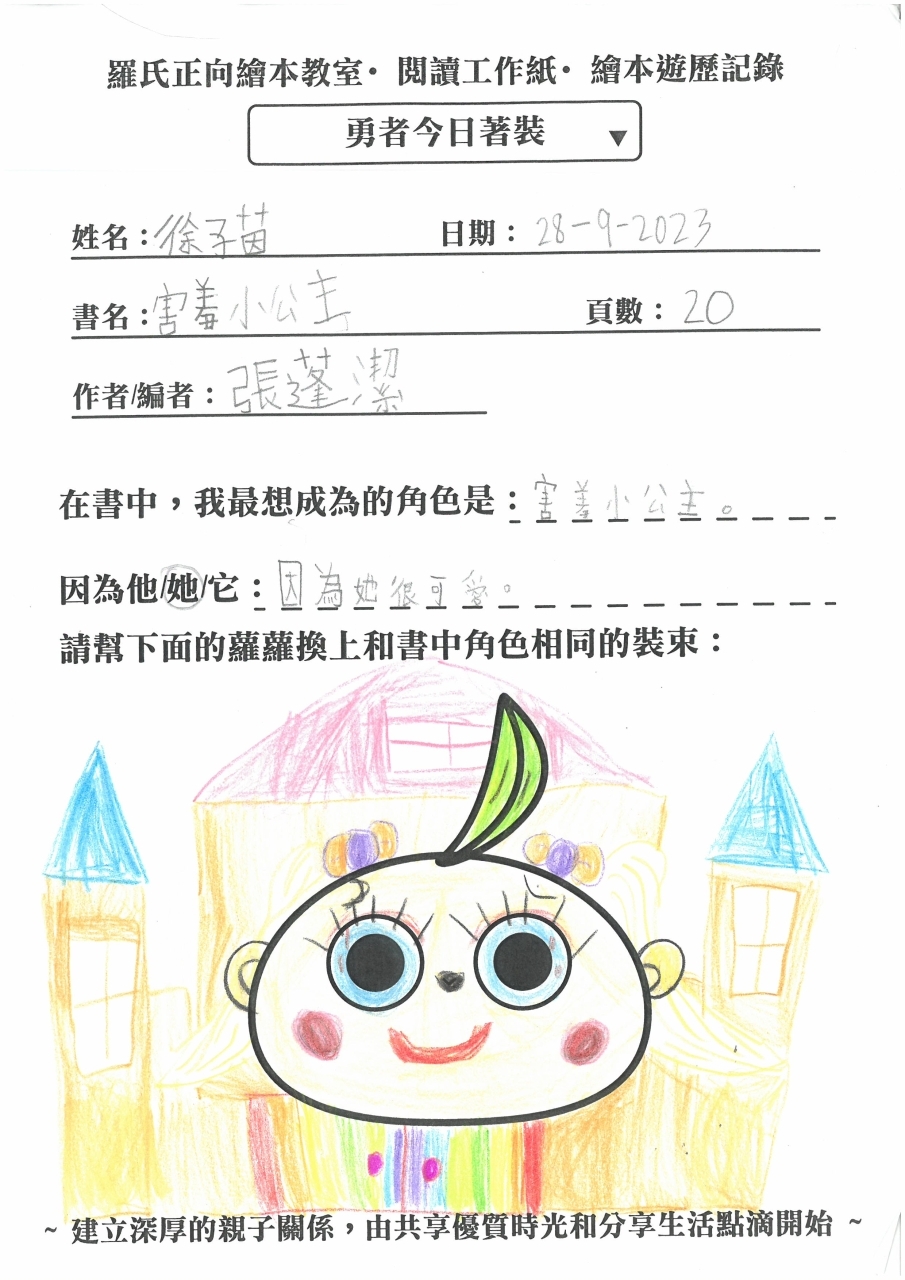 羅氏正向繪本教室•閱讀工作紙•繪本遊歷記錄
勇者今日著裝
姓名：徐子茵 日期：28-9-2023
書名：害羞小公主 頁數：20
作者/編者：張蓬潔
在書中，我最想成為的角色是：害羞小公主。
因為他/她/它：因為她很可愛。
請幫下面的蘿蘿換上和書中角色相同的裝束：
~ 建立深厚的親子關係，由共享優質時光和分享生活點滴開始 ~